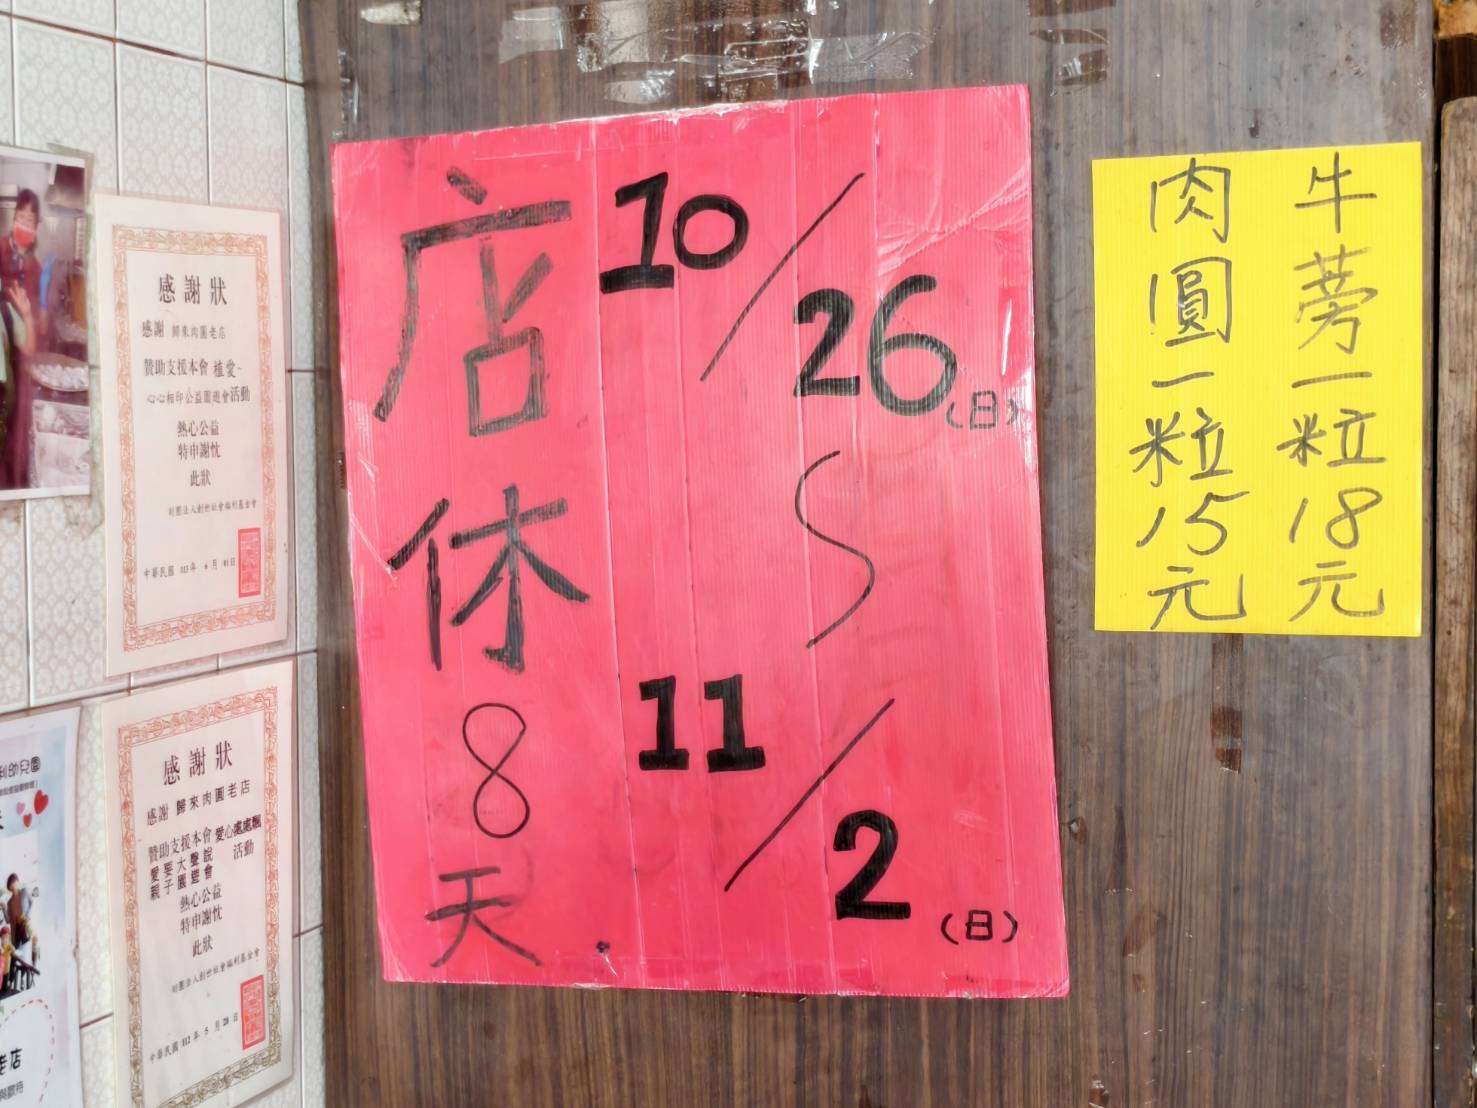 店休8天
10/26(日)
S
11/2(日)
牛蒡一粒18元
肉圓一粒15元
感謝狀
感謝 歸來肉圓老店
贊助支援本會 植愛~
心心相印公益園遊會活動
熱心公益
特申謝忱
此狀
財團法人創世社會福利基金會
中華民國 113 年 6 月 01 日
感謝狀
感謝 歸來肉圓老店
贊助支援本會 愛心處處飄
愛要大聲說 活動
親子園遊會
熱心公益
特申謝忱
此狀
財團法人創世社會福利基金會
中華民國 112 年 5 月 28 日
利幼兒園
老店